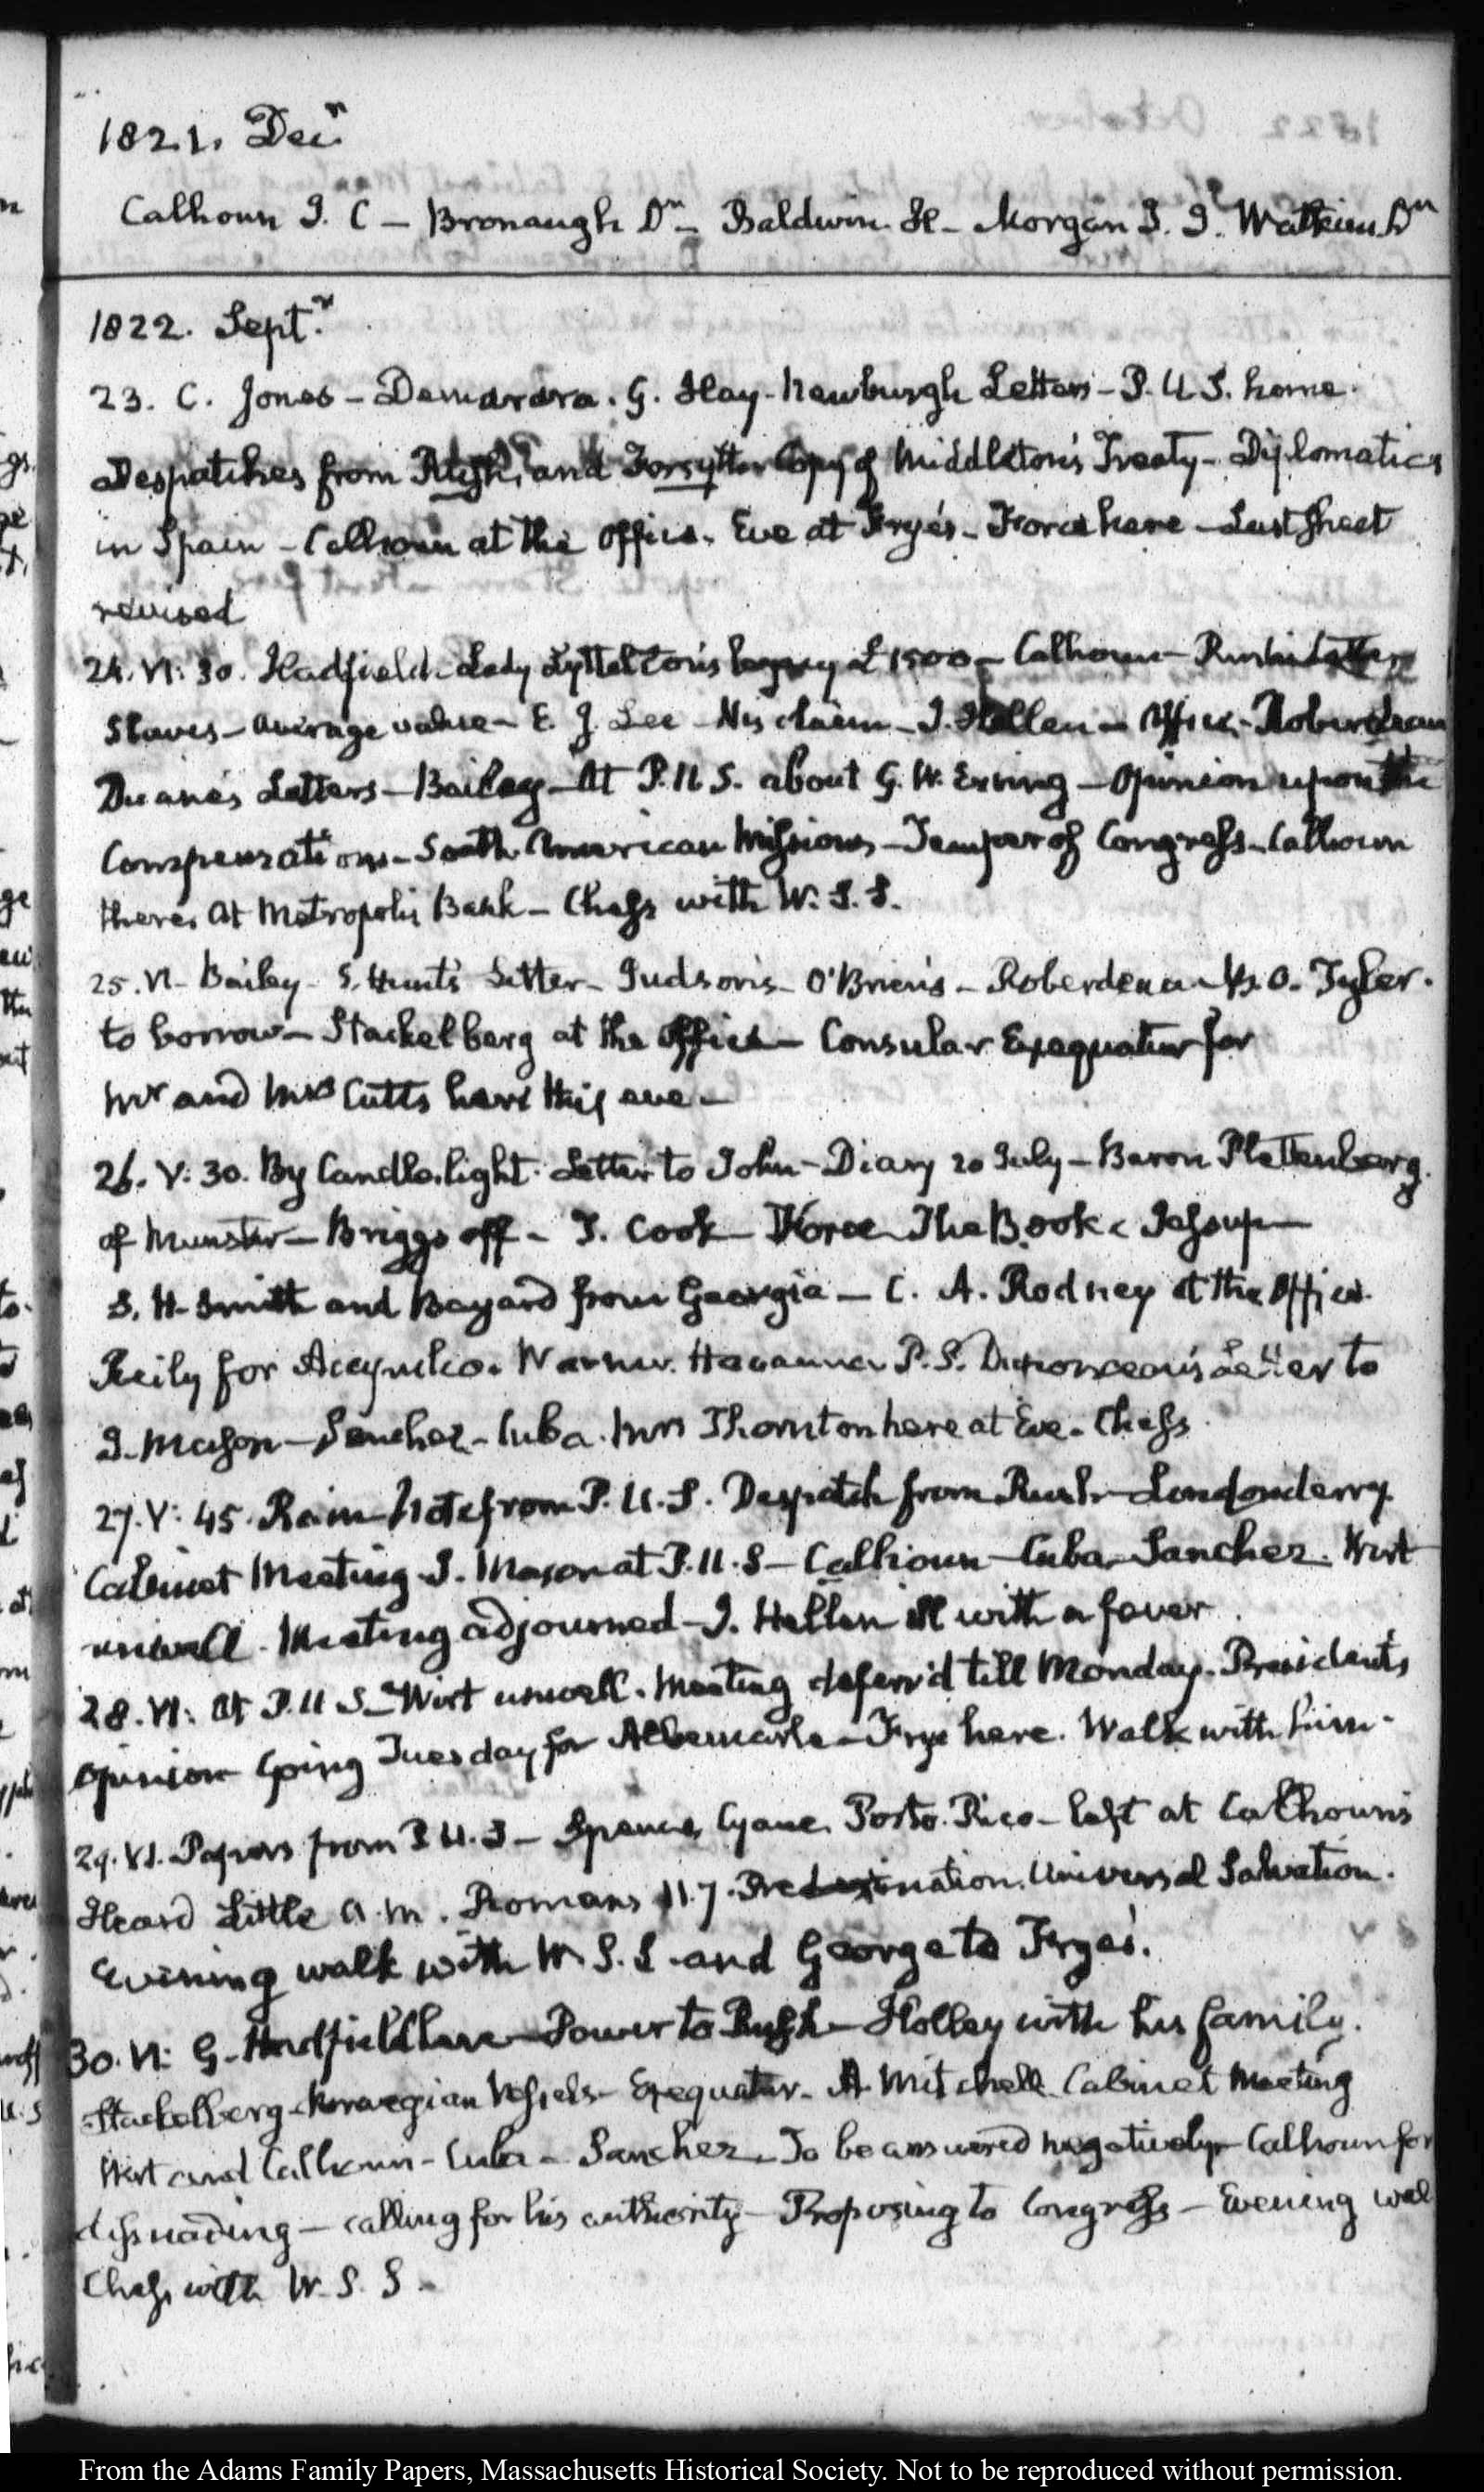 1821. Decr.
Calhoun J. C – Bronaugh Dr – Baldwin H – Morgan J. J. Watkins Dr
1822. Septr.
23. C. Jones – Demarara. G. Hay – Newburgh Letters – P. U S. home.
Despatches from Rush, and Forsyth Copy of Middleton's Treaty – Diplomatics
in Spain – Calhoun at the Office. Eve at Frye's – Force here – Last sheet
revised
24. VI: 30. Hadfield – Lady Lyttelton's legacy £1500 – Calhoun –
Slaves – average value – E. J. Lee – His claim – J. Hellen – Office – Roberdeau
Duane's Letters – Bailey – At P. U S. about G. W. Erving – Opinion upon the
Compensations – South American Missions – Temper of Congress – Calhoun
there. At Metropolis Bank – Chess with W. S. S.
25. VI – Bailey – S. Hunt's Letter – Judson's – O'Brien's – Roberdeau – O. Tyler.
to borrow – Stackelberg at the Office – Consular Exequatur for
Mr and Mrs Cutts here this eve –
26. V: 30. By Candle light. Letter to John – Diary 20 July – Baron Plettenberg.
of Munster – Briggs off – T. Cook – Force The Book – Jessup –
S. H. Smith and Bayard from Georgia – C. A. Rodney at the Office.
Reily for Acapulco. Warner. Havanna P. S. Duponceau's Letter to
J. Mason – Sanchez – Cuba. Mrs Thornton here at Eve. Chess
27. V: 45. Rain – Note from P. U. S. Despatch from Rush – Londonderry.
Cabinet Meeting – J. Mason at P. U. S – Calhoun – Cuba – Sanchez. Wirt
unwell. Meeting adjourned – J. Hellen ill with a fever.
28. VI: At P. U S – Wirt unwell. Meeting deferr'd till Monday. President's
opinion Going Tuesday for Albemarle – Frye here. Walk with him.
29. VI. Papers from P. U. S – Spence, Cyane. Porto Rico – left at Calhoun's
Heard Little A. M. Romans 11. 7. Predestination. Universal Salvation.
Evening walk with W. S. S. and George to Frye's.
30. VI: G. Hadfield here – Power to Rush – Holley with his family.
Stackelberg – Norwegian Vessels – Exequatur – A. Mitchell. Cabinet Meeting
Wirt and Calhoun – Cuba – Sanchez – To be answered negatively – Calhoun for
dissuading – calling for his authority – Proposing to Congress – Evening wal
Chess with W. S. S.
From the Adams Family Papers, Massachusetts Historical Society. Not to be reproduced without permission.